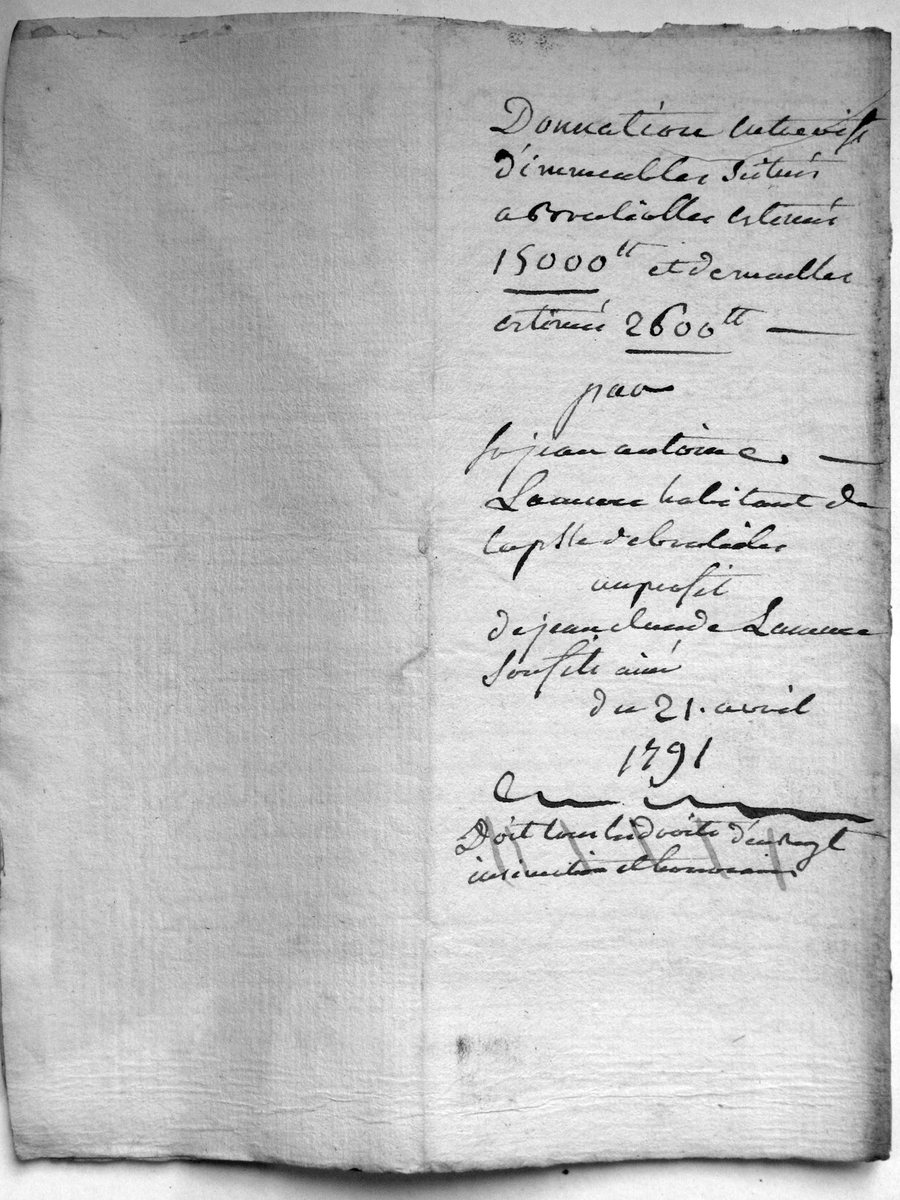 Donnation entre vifs
d'immeubles situés
a estimés
15000tt et de meubles
estimés 2600tt
par
Sr jean antoine
Laurence habitant de
la psse de
au profit
de jean claude Laurence
son fils ainé
du 21. avril
1791
Doit tous les droits d'enregt
insinuation et honoraires